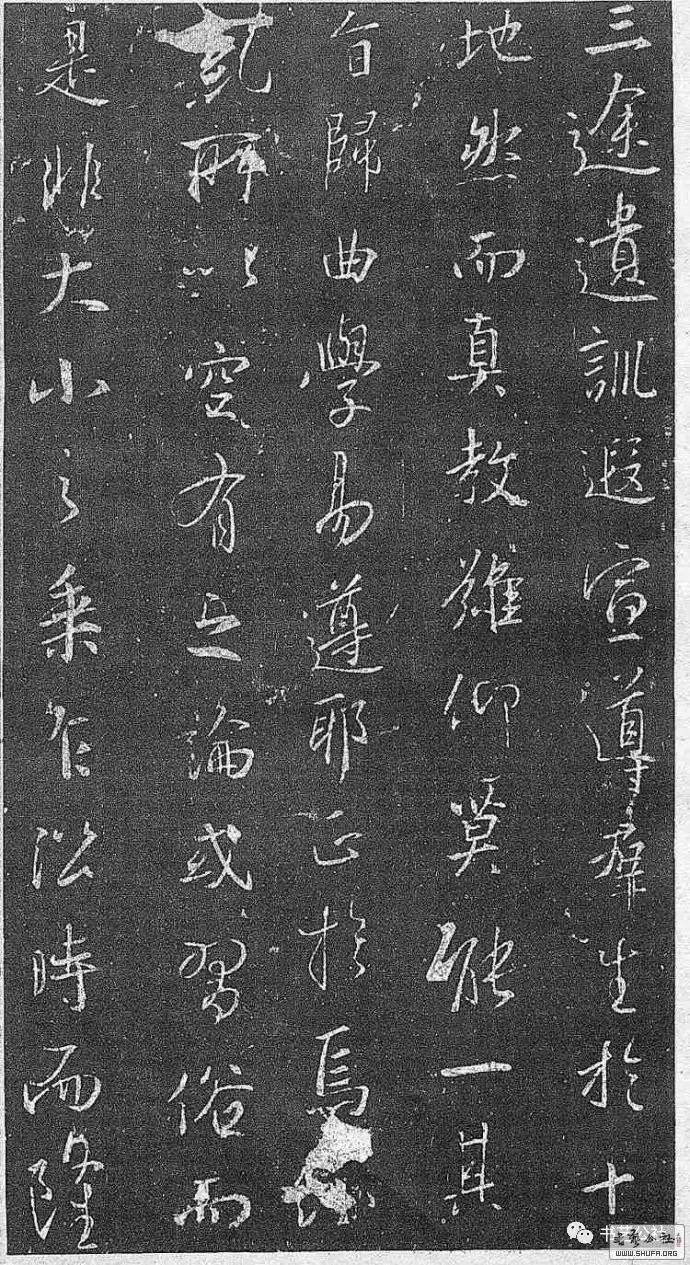 三途遺訓遐宣導羣生於十
地然而真教難仰莫能一其
旨歸曲學易遵耶正於焉紛
糺所以空有之論或習俗而
是非大小之乘乍沿時而隆
书艺公社
WWW.SHUFA.ORG